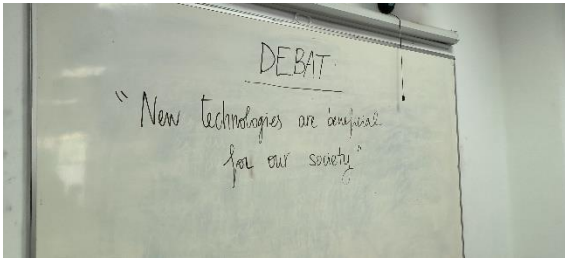 DEBAT
"New technologies are beneficial
for our society"